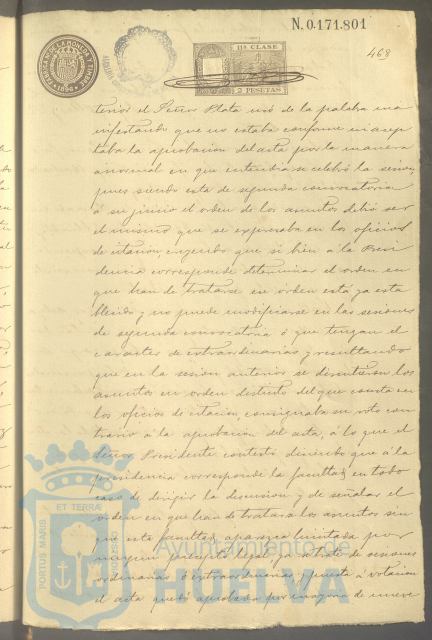 N. 0.171.801
468
FABRICA DE LA MONEDA Y TIMBRE
1896
11ª CLASE
2 PESETAS
terior el Señor Plata usó de la palabra ma
nifestando que no estaba conforme ni acep
taba la aprobacion del acta por la manera
anormal en que entendia se celebró la sesion,
pues siendo esta de segunda convocatoria
á su juicio el orden de los asuntos debió ser
el mismo que se expresaba en los oficios
de citacion, creyendo que si bien á la Presi
dencia corresponde determinar el orden en
que han de tratarse ese orden está ya esta
blecido y no puede modificarse en las sesiones
de segunda convocatoria ó que tengan el
caracter de extraordinarias y resultando
que en la sesion anterior se discutieron los
asuntos en orden distinto del que consta en
los oficios de citacion, consignaba su voto con
trario á la aprobacion del acta, á lo que el
Señor Presidente contestó diciendo que á la
presidencia corresponde la facultad en todo
caso de dirigir la discusion y de señalar el
orden en que han de tratarse los asuntos sin
que esta facultad aparezca limitada por
ningun ya se trate de sesiones
ordinarias ó extraordinarias, y puesta á votacion
el acta quedó aprobada por mayoria de nueve
PORTUS MARIS ET TERRÆ CUSTODIA
Ayuntamiento de
HUELVA